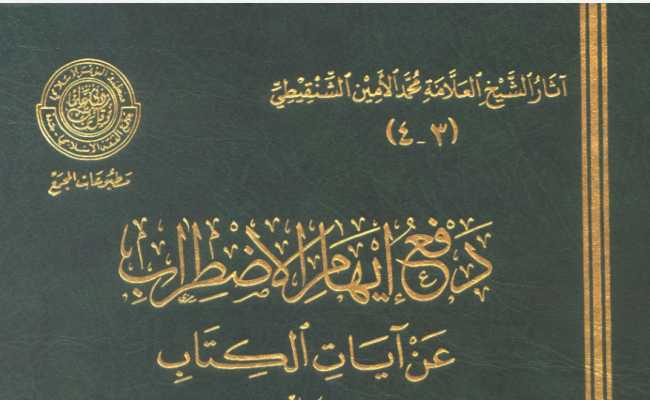 آثَارُ الشَّيْخِ العَلَّامَةِ مُحَمَّد الأَمِين الشَّنْقِيطِيِّ
(٣-٤)
مطبوعات المجمع
دَفْعُ إِيهَامِ الاضْطِرَابِ
عَنْ آيَاتِ الكِتَابِ